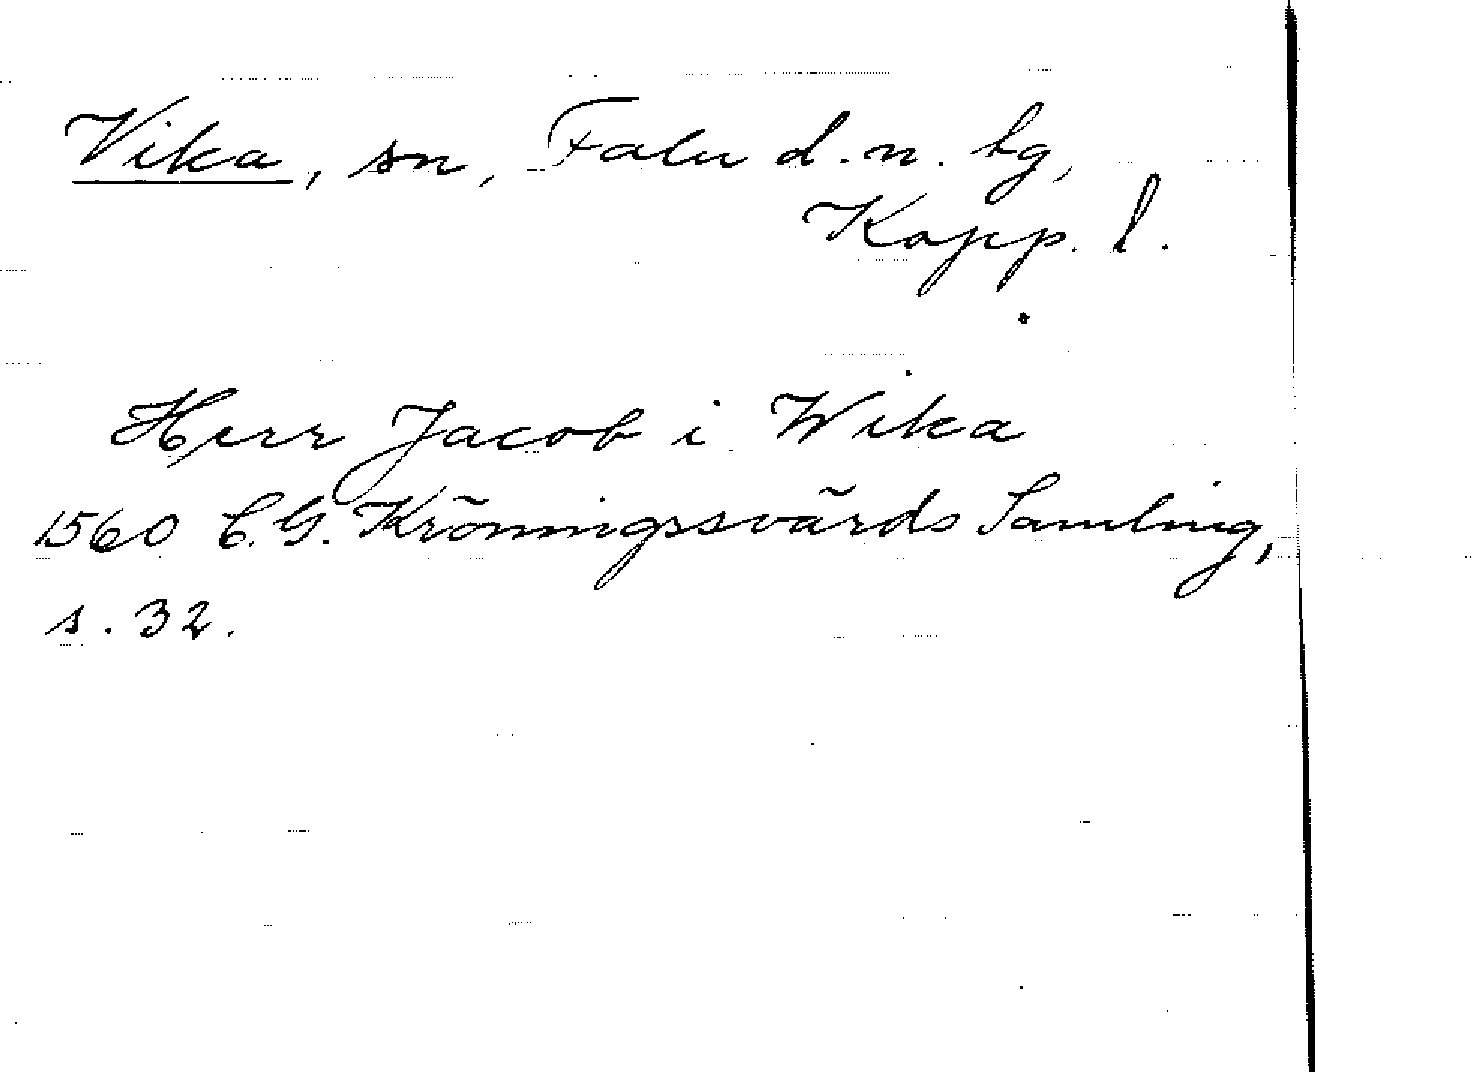 Vika, sn, Falu d. n. bg,
Kopp. l.
Herr Jacob i Wika
1560 C. G. Kröningssvärds Samling,
s. 32.